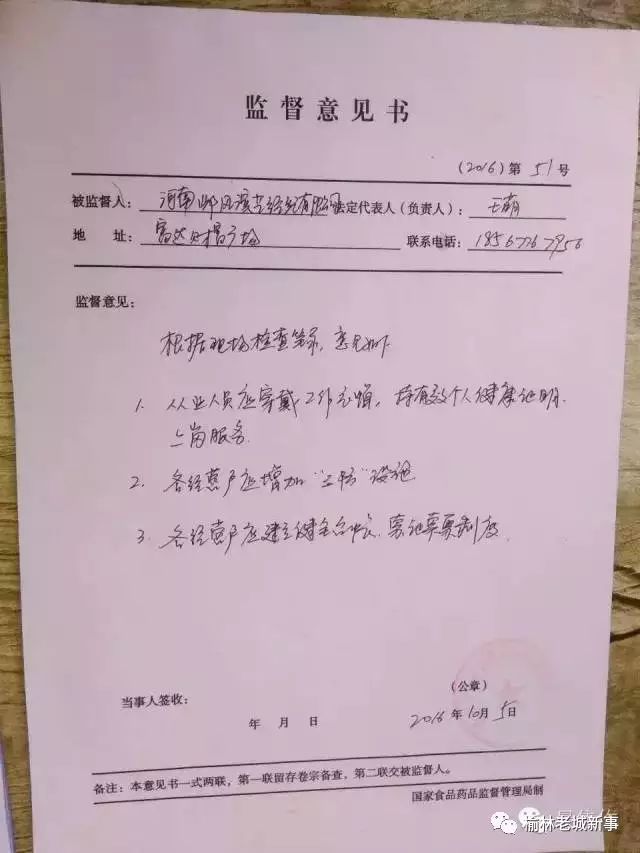 监督意见书
(2016)第 51 号
被监督人：河南 有限公司 法定代表人（负责人）：王萌
地 址：富达 广场 联系电话：18567267956
监督意见：
根据现场检查笔录，意见如下
1. 从业人员应穿戴工作衣帽，持有效个人健康证明
上岗服务.
2. 各经营户应增加“三防”设施
3. 各经营户应建立健全台账、索证索票制度.
当事人签收：
（公章）
年 月 日
2016 年 10 月 5 日
备注：本意见书一式两联，第一联留存卷宗备查，第二联交被监督人。
国家食品药品监督管理局制
榆林老城新事